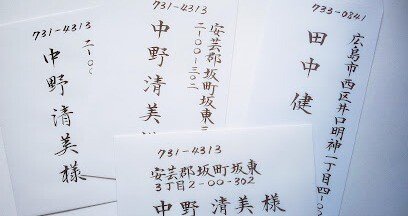 731-4313
二-〇〇
中野清美様
731-4313
安芸郡坂町坂東
二-〇〇-三〇二
中野清美
733-0841
広島市西区井口明神一丁目四-
田中健
731-4313
安芸郡坂町坂東
3丁目2-00-302
中野清美様